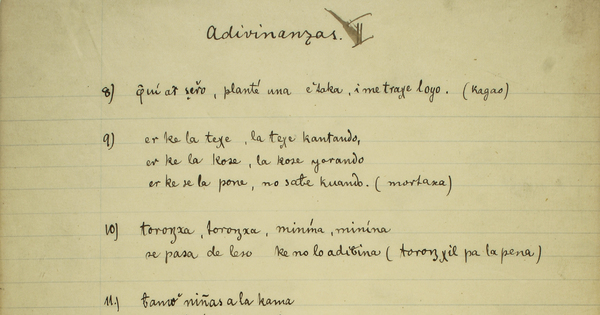 Adivinanzas. II
8) q̂uí ar̄ s̩er̆o, planté una ĕtaka, i me traxe loyo. (kagao)
9) er ke la texe, la texe kantando,
er ke la kose, la kose yorando
er ke se la pone, no saƀe kuando. (mortaxa)
10) toronxa, toronxa, minína, minína
se pasa de leso ke no lo adiƀina (toronxil pa la pena)
11) niñas a la kama